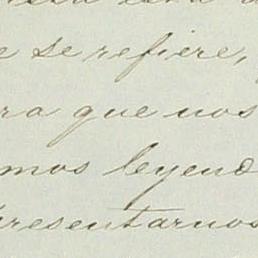 e se refiere,
ra que nos
mos leyend
presentarnos